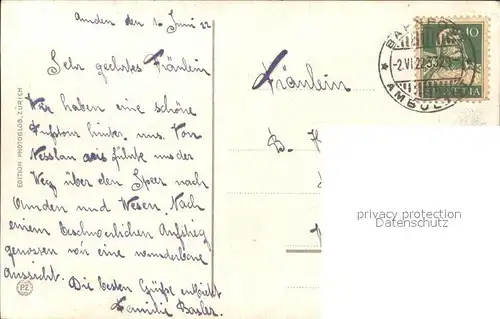 Amden den 1. Juni 22
Sehr geehrtes Fräulein
Wir haben eine schöne
Fußtour hinter uns. Von
Nesslau aus führte uns der
Weg über den Speer nach
Amden und Wesen. Nach
einem beschwerlichen Aufstieg
genossen wir eine wunderbare
Aussicht. Die besten Grüße entbietet
Familie Basler.
EDITION PHOTOGLOB, ZÜRICH
PZ
Fräulein
10
HELVETIA
-2.VI.22
AMBUL
privacy protection
Datenschutz